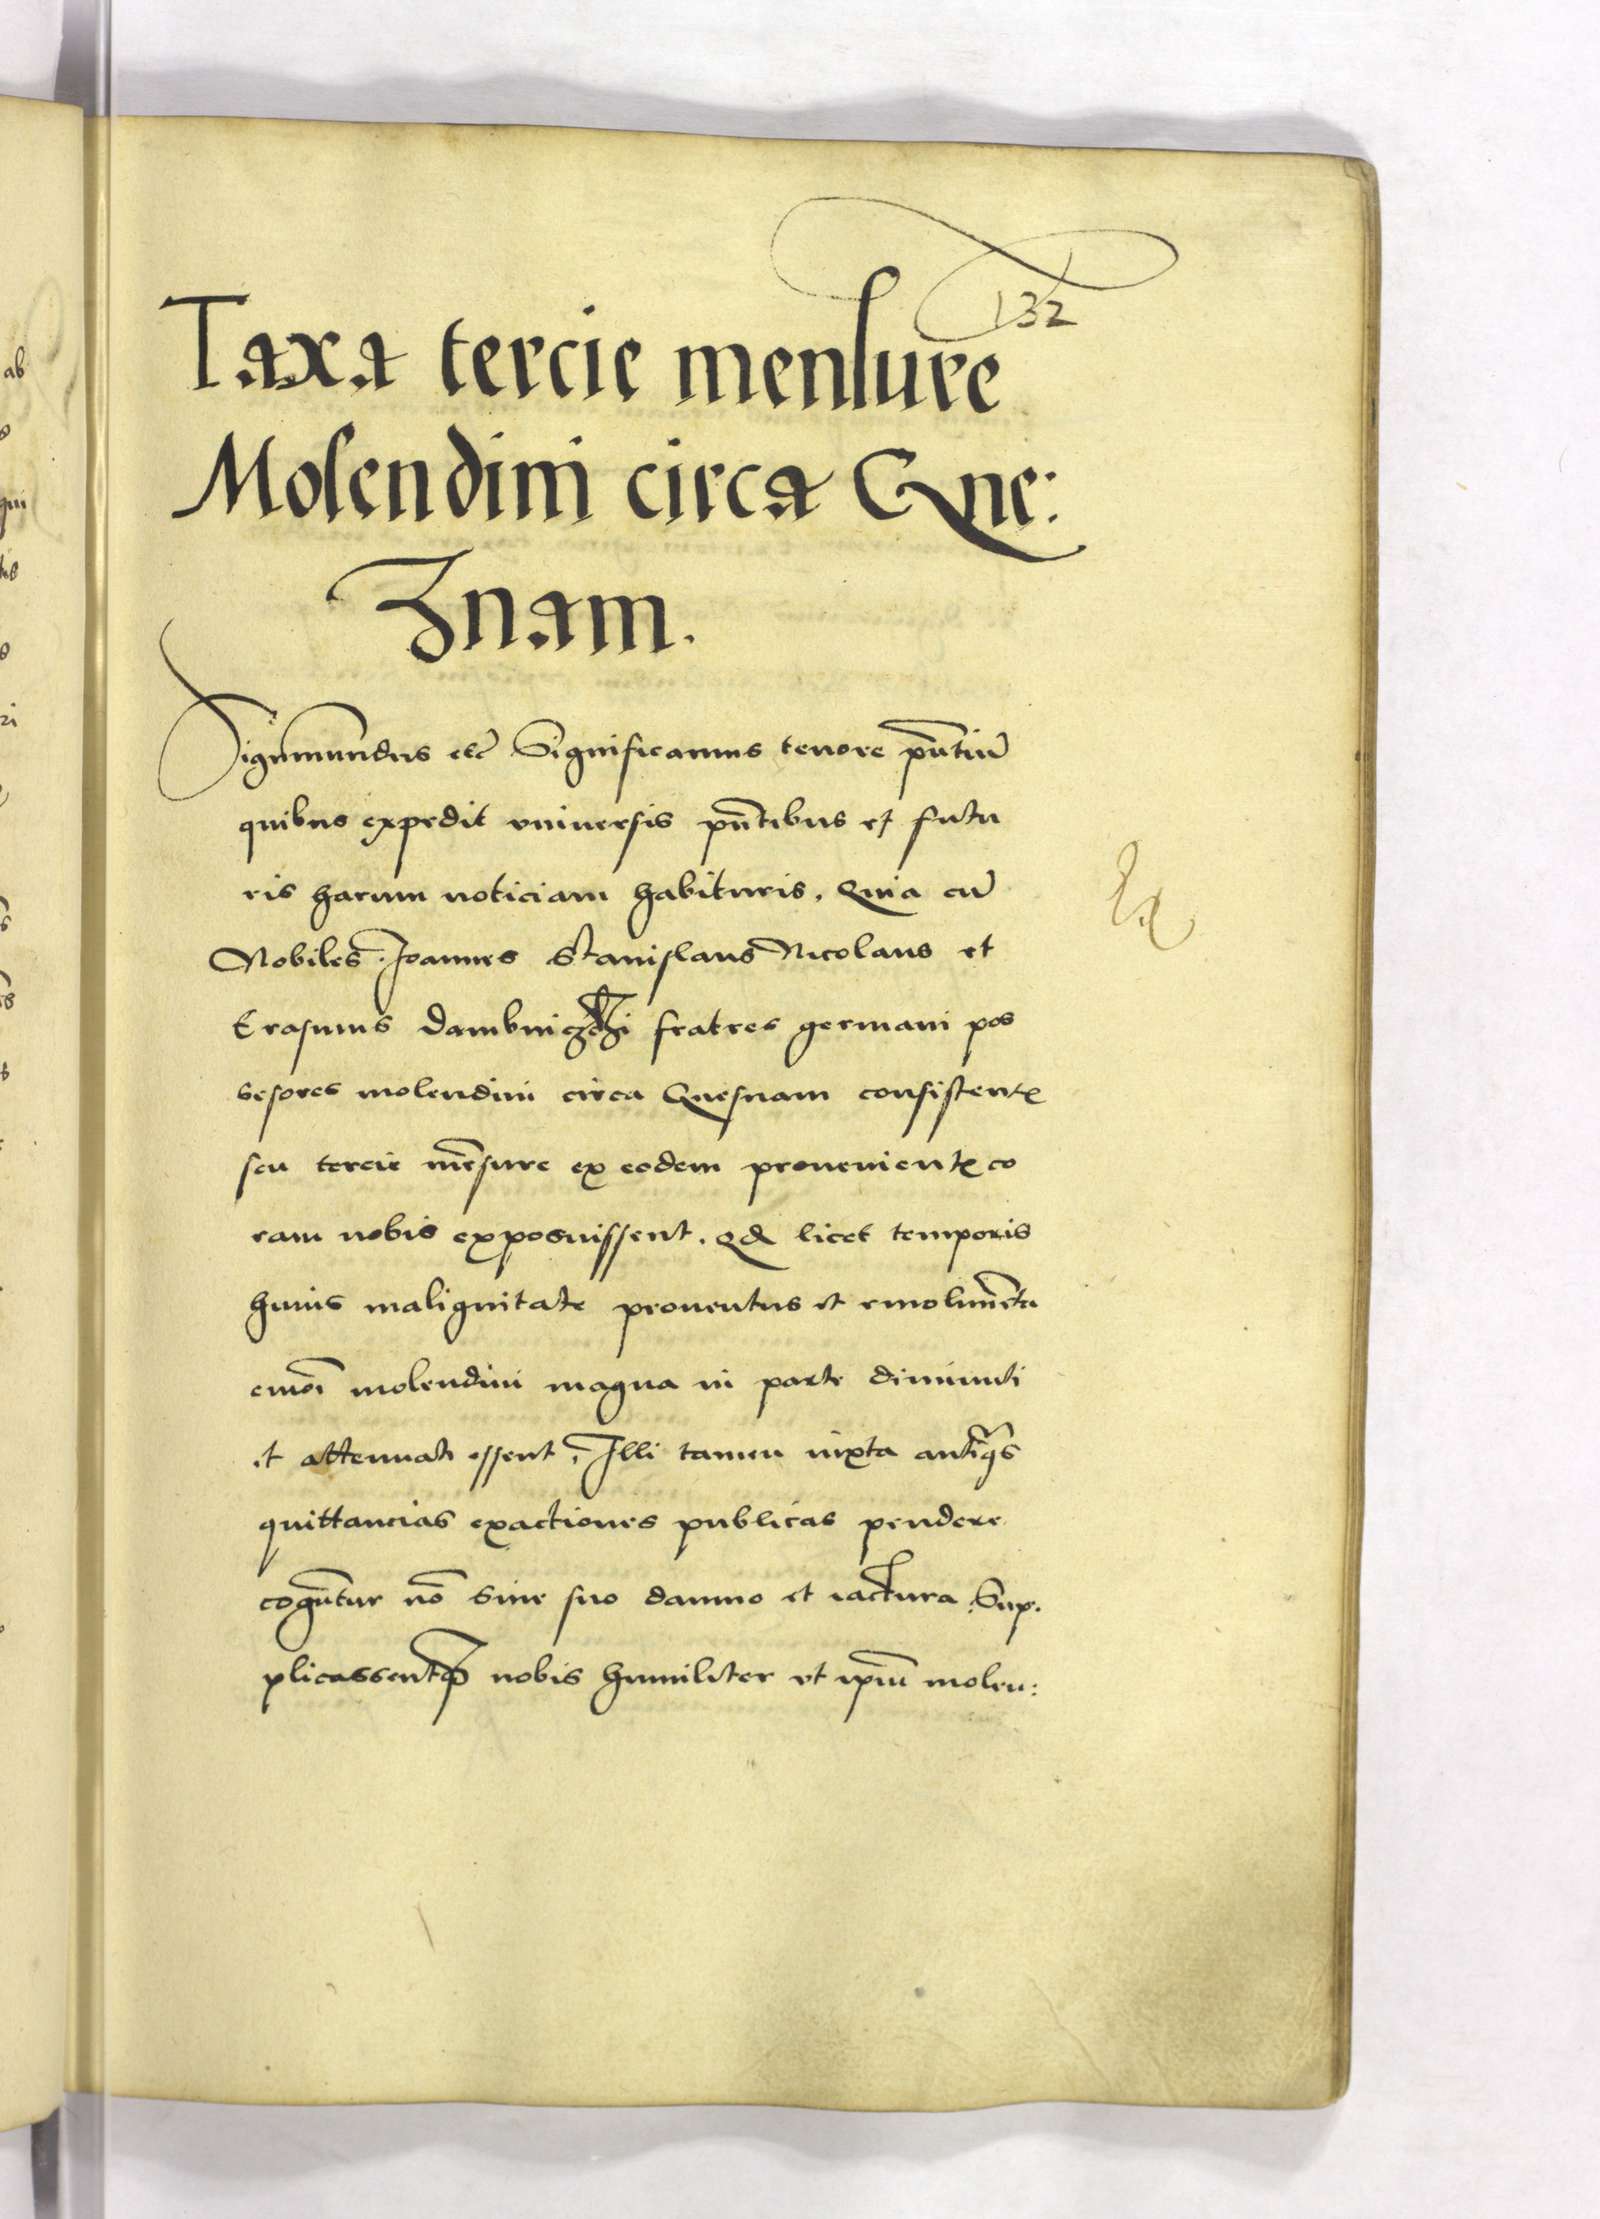 132
Taxa tercie mensure
Molendini circa Gne:
Znam.
Sigismundus etc̃ Significamus tenore pñtiũ
quibus expedit vniuersis pñtibus et futu
ris harum noticiam habituris. Quia cũ
Nobiles Joannes Stanislaus Nicolaus et
Erasmus fratres germani pos
sesores molendini circa Gnesnam consistentꝭ
seu tercie mẽsure ex eodem prouenientꝭ co
ram nobis exposuissent. qđ licet temporis
huius malignitate prouentus et emolumẽta
molendini magna in parte diminuti
et attenuati essent, Illi tamen iuxta antiqͣs
quittancias exactiones publicas pendere
cogũtur nõ sine suo damno et iactura. Sup.
plicassentqꝫ nobis humiliter vt ipm̃ molen:
ab
qui
tis
ri